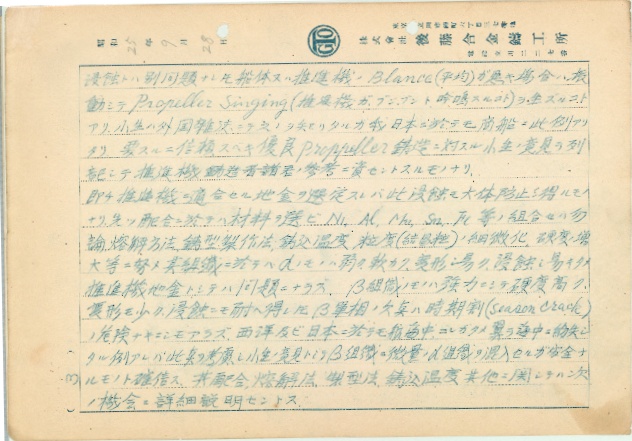 昭和25年9月28日
株式会社 後藤合金鋳工所
浸蝕トハ別問題ナレ共船体スハ推進機ノBlance(平均)ガ悪キ場合ハ振
動シテPropeller Singing(推進機ガブンブント吟鳴スルコト)ヲ生ズルコト
アリ 小生ハ外国雑誌ニテ之ヲ知リタルガ我日本ニ於テモ商船ニ此例アリ
タリ 要スルニ信頼スベキ優良Proppuller鋳造ニ対スル小生ノ意見ヲ列
記シテ推進機鋳造者諸君ノ参考ニ資セントスルモノナリ
即チ推進機ニ適合セル地金ヲ選定スレバ此浸蝕モ大体防止シ得ルモノ
ナリ先ヅ配合ニ於テハ材料ヲ選ビ Ni, Al, Mn, Sn, Fe 等ノ組合セハ勿
論熔解方法、鋳型製作法、鋳込温度、粒度(結晶粒)ノ細微化、硬度ノ増
大等ニ努メ其組織ニ於テハαノモノハ弱ク軟カク、変形シ易ク、浸蝕シ易キタメ
推進機地金トシテハ問題ニナラズ、β組織ノモノハ強力ニシテ硬度高ク、
変形モ少ク、浸蝕ニモ耐ヘ得レ共β単相ノ欠点ハ時期割(season crack)
ノ危険ナキニシモアラズ 西洋及ビ日本ニ於テモ航海中
タル例アレバ此点ヲ考慮シ小生ノ意見トシテハβ組織ニ微量ノα組織ヲ混入セルガ安全ナ
ルモノト確信ス、其配合、熔解法、製型法、鋳込温度其他ニ関シテハ次
ノ機会ニ詳細説明セントス
(3)